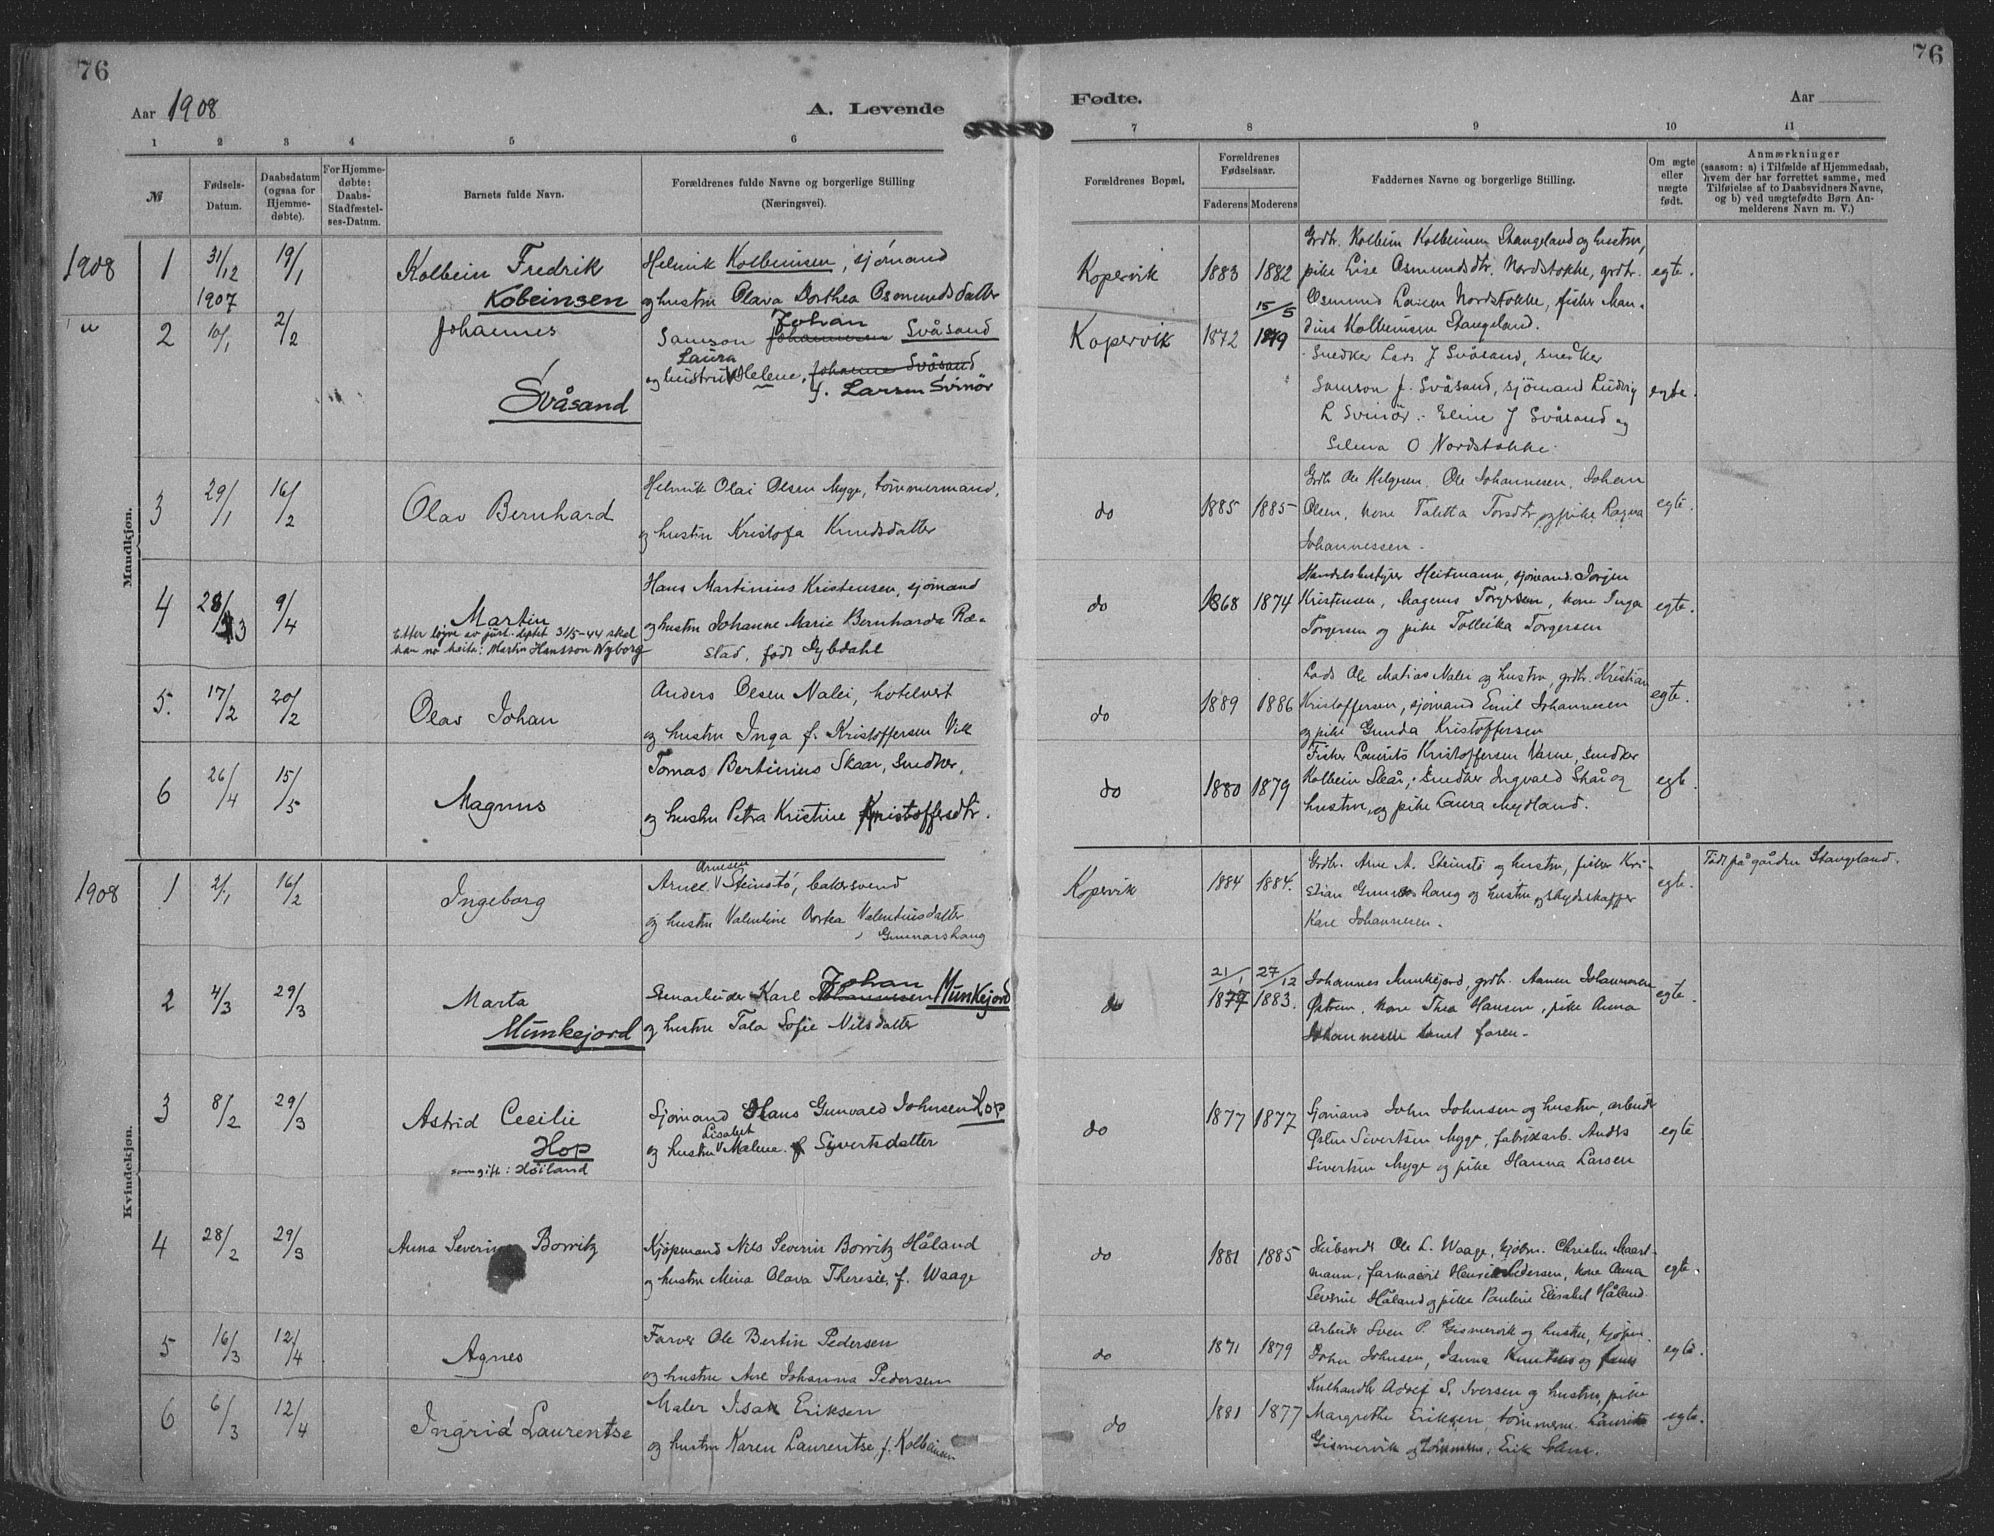 76
76
Aar 1908
A. Levende
Fødte.
Aar
1 2 3 4 5 6 7 8 9 10 11
№
Fødsels-
Datum.
Daabsdatum
(ogsaa for
Hjemme-
døbte).
For Hjemme-
døbte:
Daabs-
Stadfæstel-
ses-Datum.
Barnets fulde Navn.
Forældrenes fulde Navne og borgerlige Stilling
(Næringsvei).
Forældrenes Bopæl.
Forældrenes
Fødselsaar.
Faderens Moderens
Faddernes Navne og borgerlige Stilling.
Om ægte
eller
uægte
født.
Anmærkninger
(saasom: a) i Tilfælde af Hjemmedaab,
hvem der har forrettet samme, med
Tilføielse af to Daabsvidners Navne,
og b) ved uægtefødte Børn An-
melderens Navn m. V.)
Mandkjøn.
1908 1 31/12 1907 19/1
Kolbein Fredrik
Kobeinsen
Helmik Kolbeinsen, sjømand
og hustru Olava Dorthea Osmundsdatter
Kopervik 1883 1882
Grdbr. Kolbein Kolbeinsen Stangeland og hustru,
pike Lise Osmundsdtr. Nordstokke, grdbr.
Osmund Larsen Nordstokke, fisker Man-
dius Kolbeinsen Stangeland.
egte.
" 2 10/1 2/2
Johannes
Svåsand
Johan
Samson Johannesen Svåsand
Laura
og hustru Helene, Johanne Svåsand
f. Larsen Svinör
Kopervik 1872 15/5 1879
Snedker Lars J Svåsand, snedker
Samson J. Svåsand, sjömand Ludvig
L Svinör. Eline J Svåsand og
Selena O Nordstokke.
egte.
3 29/1 16/2
Olav Bernhard
Helmik Olai Olsen Myge, tømmermand,
og hustru Kristofa Knudsdatter
do 1885 1885
Grdb. Ole Helgesen, Ole Johannesen, Johan
Olsen, kone Taletta Torsdtr og pike Ragna
Johannessen.
egte.
4 28/3 9/4
Martin
Etter løyve av just. deptet 31/5-44 skal
han no heite: Martin Hansson Nyborg
Hans Martinius Kristensen, sjömand
og hustru Johanne Marie Bernharda Ræ-
stad, født Dybdahl
do 1868 1874
Handelsbestyrer Heitmann, sjömand Jorgen
Kristensen, Magnus Torgersen, kone Inga
Torgersen og pike Tolleika Torgersen
egte.
5. 17/2 20/2
Olav Johan
Anders Olsen Nalei, hotelvert
og hustru Inga f. Kristoffersen Vik
do 1889 1886
Lods Ole Matias Nalei og hustru, grdbr. Kristian
Kristoffersen, sjömand Emil Johannesen
og pike Gunda Kristoffersen
egte.
6 26/4 15/5
Magnus
Tomas Bertinius Skaar, snedker,
og hustru Petra Kristine Kristoffersdtr.
do 1880 1879
Fisker Laurits Kristoffersen Varne, snedker
Kolbein Skår, snedker Ingvald Skår og
hustru, og pike Laura Mydland.
egte.
Kvindekjøn.
1908 1 2/1 16/2
Ingeborg
Arnesen
Arne Steinstö, bakersvend
og hustru Valentine Dorka Valentinsdatter
Gunnarshaug
Kopervik 1884 1884.
Grdbr. Arne A. Steinstö og hustru, fisker Kri-
stian Gunnarshaug og hustru og skydsskaffer
Karl Johannesen.
egte.
Født på gården Stangeland.
2 4/3 29/3
Marta
Munkejord
Johan
Stenarbeider Karl Johannesen Munkejord
og hustru Tala Sofie Nilsdatter
do 21/1 1877 27/12 1883.
Johannes Munkejord, grdb. Aanen Johannesen
Østrem, kone Thea Hansen, pike Anna
Johannesen samt faren.
egte.
3 8/2 29/3
Astrid Cecilie
Hop
som gift: Høiland
Sjömand Hans Gunvald Johnsen Hop
Lisabet
og hustru Malene f Sivertsdatter
do 1877 1877
Sjömand John Johnsen og hustru, arbeider
Østen Sivertsen Myge, fabrikarb. Anders
Sivertsen Myge og pike Hanna Larsen
egte
4 28/2 29/3
Anna Severine Borritz
Kjöpmand Nils Severin Borritz Håland
og hustru Mina Olava Theresie, f. Waage
do 1881 1885
Skibsreder Ole L. Waage, kjöbm. Christen Maart-
mann, farmaceit Henrik Pedersen, kone Anna
Severine Håland og pike Pauline Elisabet Håland
egte.
5 16/3 12/4
Agnes
Farver Ole Bertin Pedersen
og hustru Ane Johanna Pedersen
do 1871 1879
Arbeider Sven P. Gismervik og hustru, kjöpm.
John Johnsen, Janna Knutsen og faren
egte.
6 6/3 12/4
Ingrid Laurentse
Maler Isak Eriksen
og hustru Karen Laurentse, f. Kolbeinsen
do 1881 1877
Kulhandler Adolf S. Iversen og hustru, pike
Margrethe Eriksen, tömmerm. Laurits
Gismervik og Erik
egte.